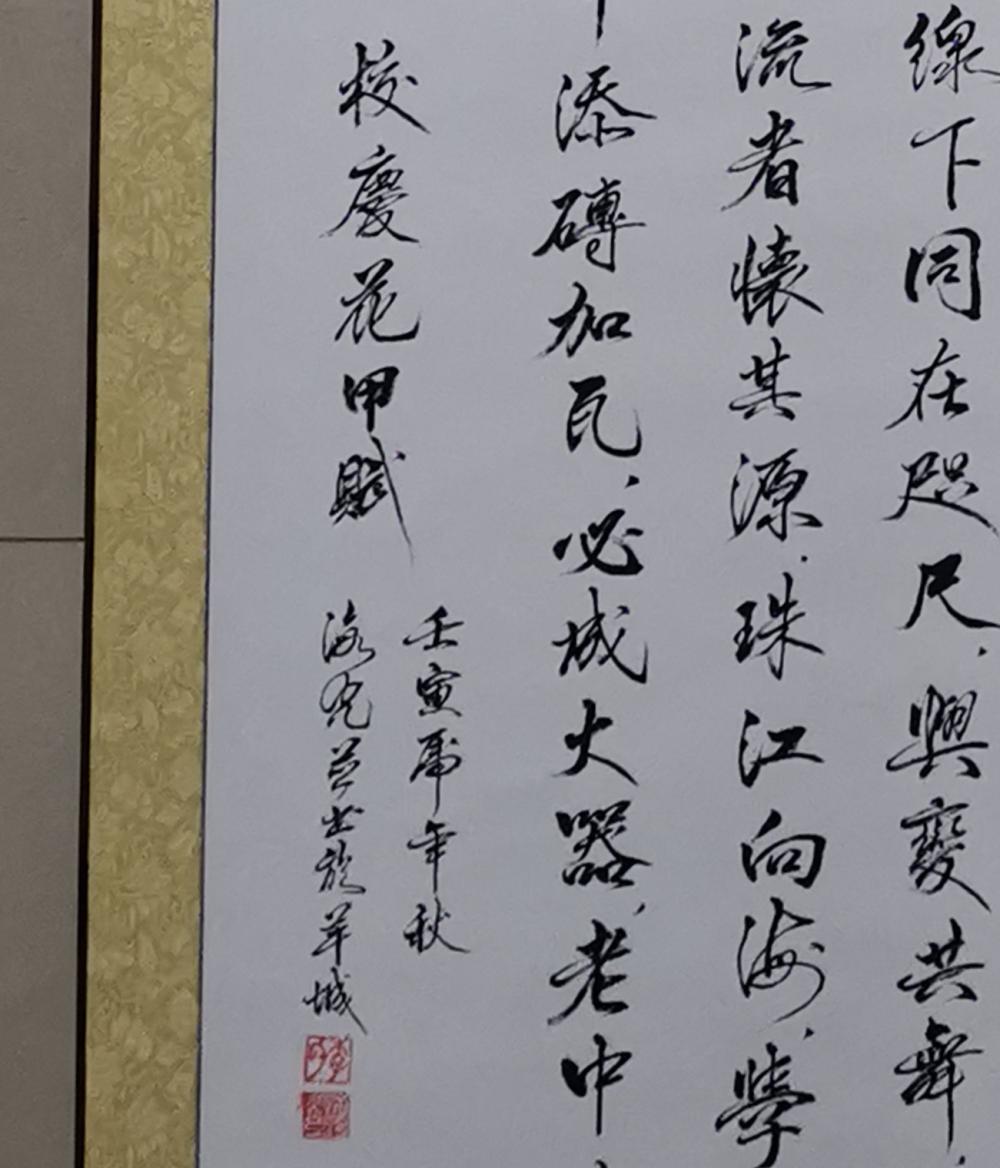 線下同在咫尺,與變共舞,
流者懷其源,珠江向海,學
添磚加瓦,必城大器,老中
校慶花甲賦
壬寅虎年秋
海亮並書於羊城